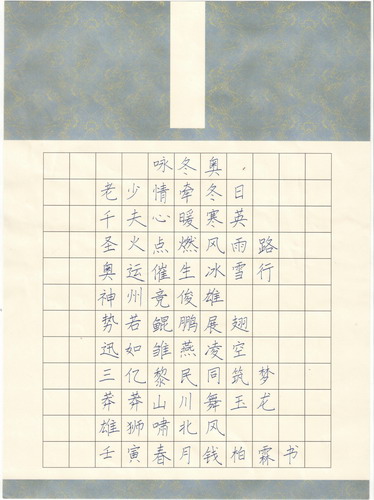 咏冬奥
老少情牵冬日
千夫心暖寒英
圣火点燃风雨路
奥运催生冰雪行
神州竞俊雄
势若鲲鹏展翅
迅如雏燕凌空
三亿黎民同筑梦
莽莽山川舞玉龙
雄狮啸北风
壬寅春月钱柏霖书